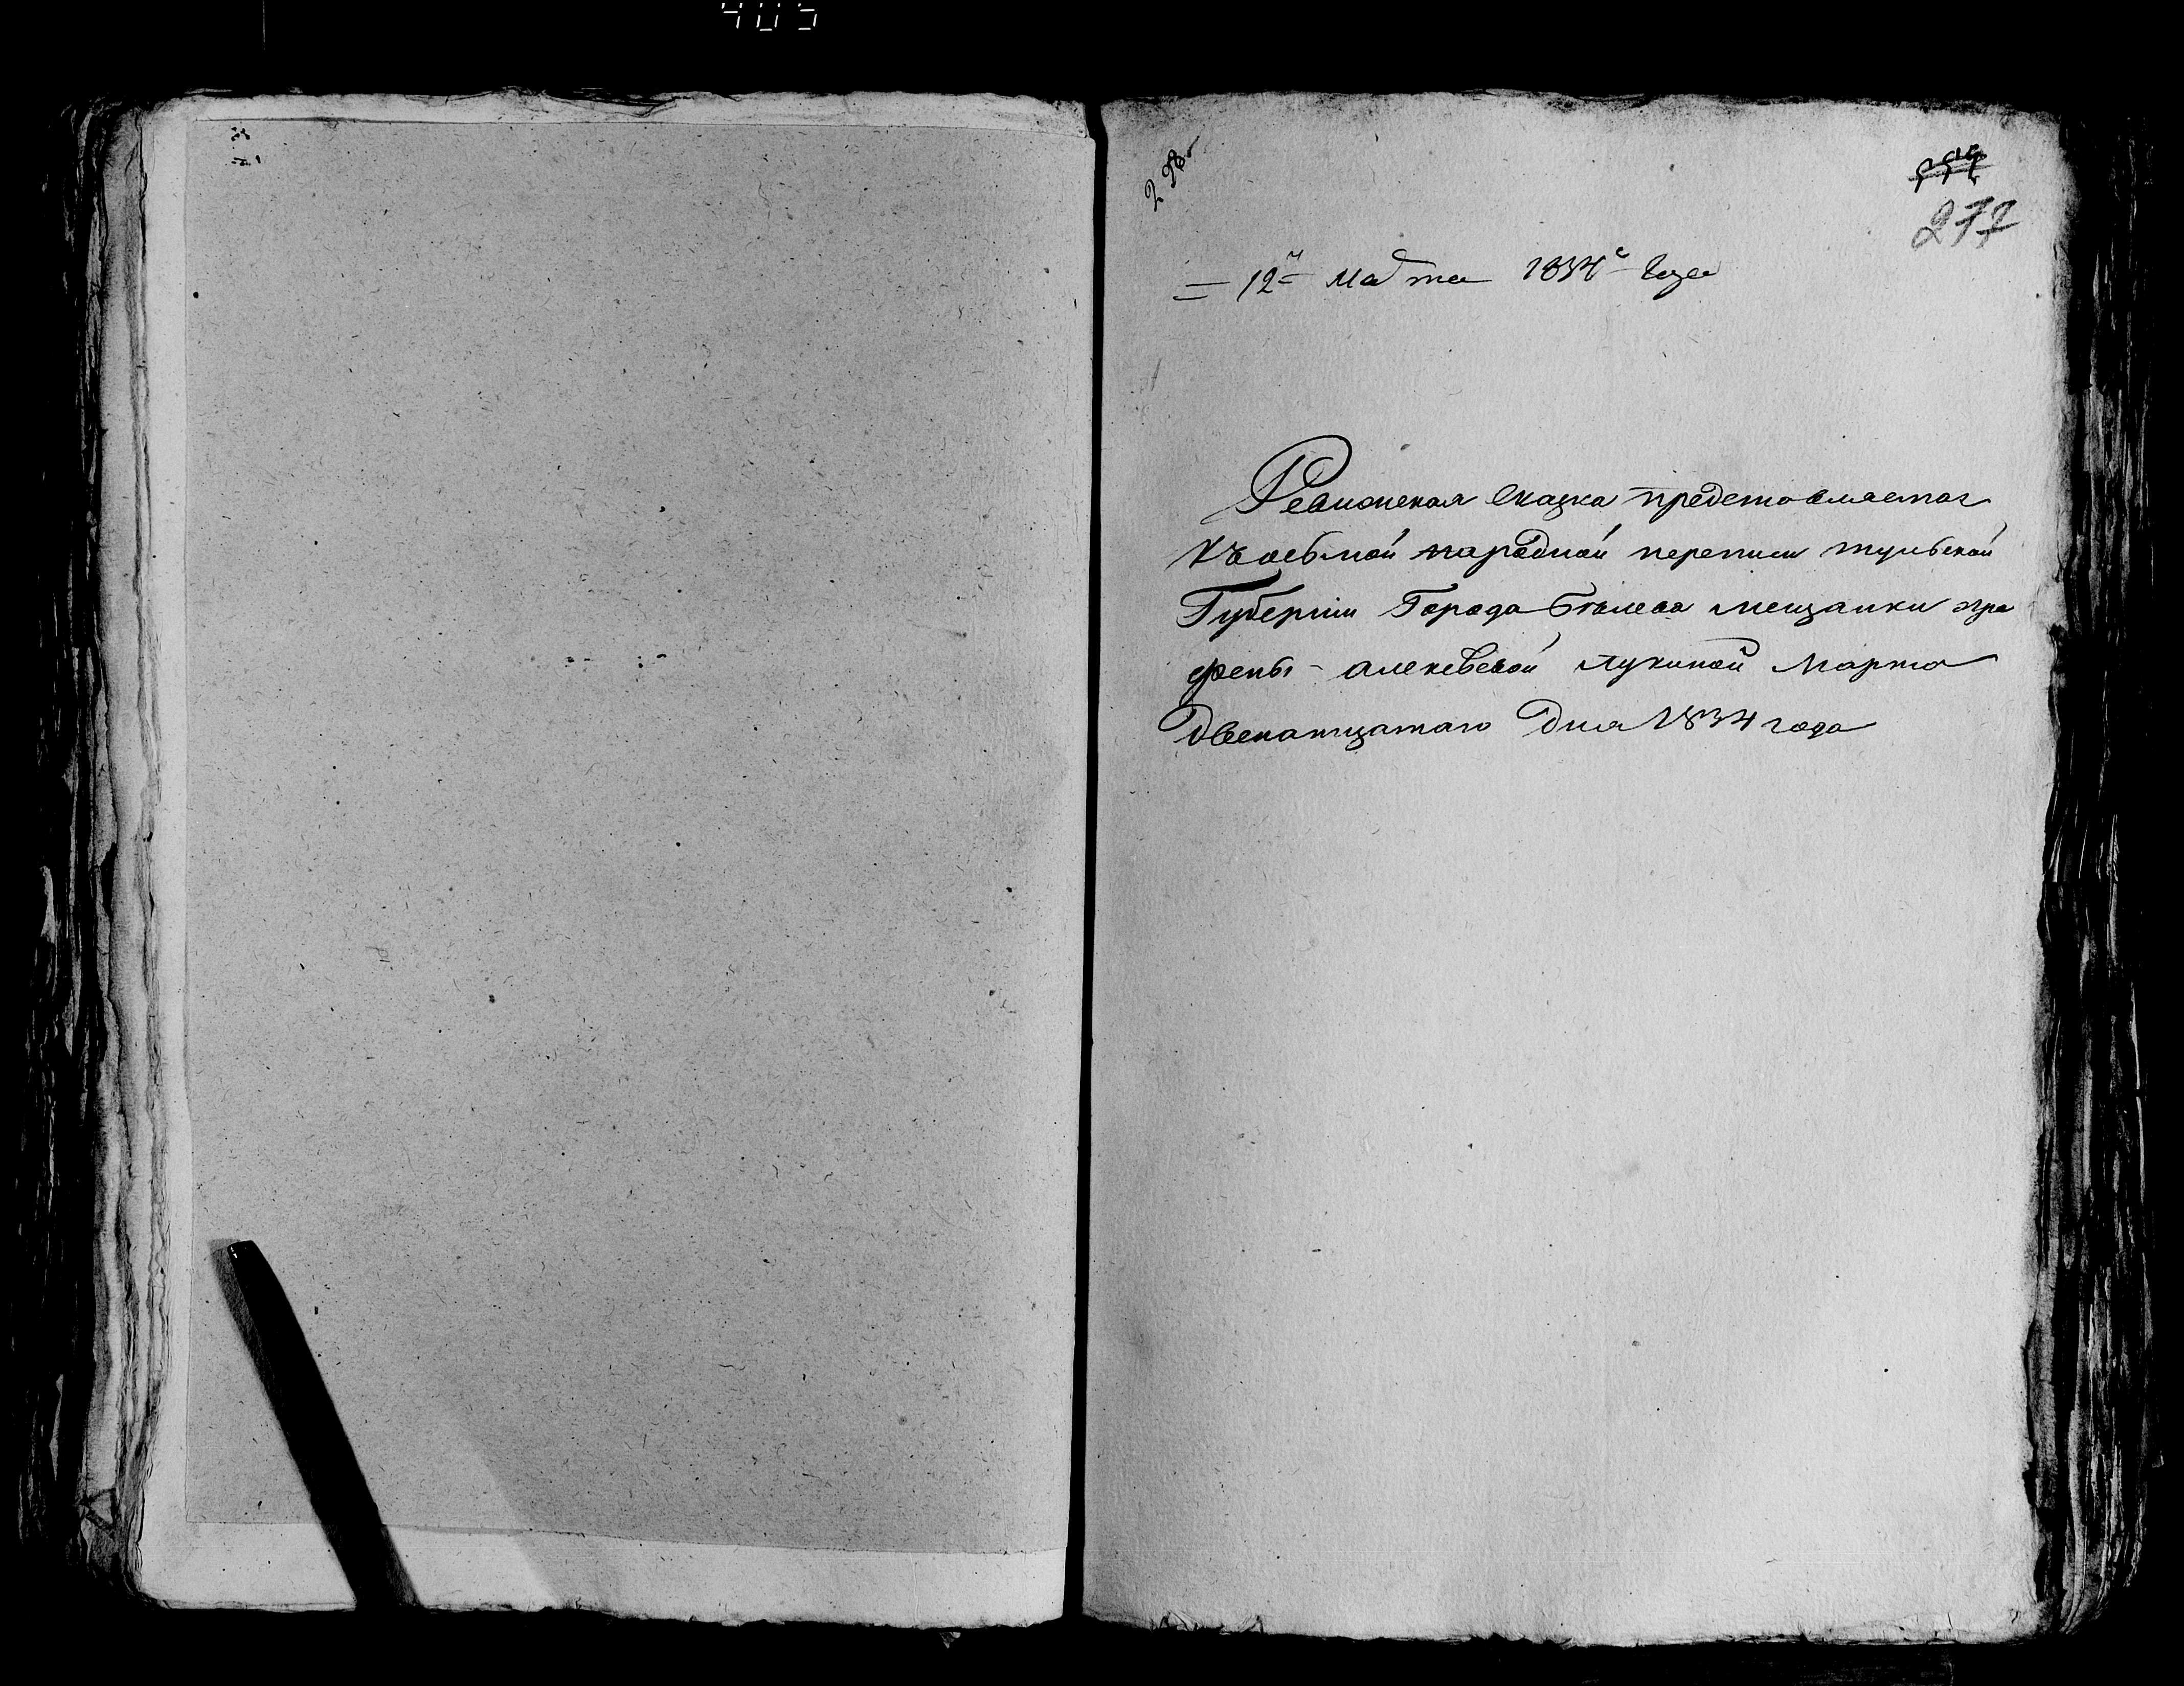 405
298
277
12 Марта 1834 Года
Ревижская Сказка представляемая
къ осьмой народной переписи тульской
Губернии Города Белева мещанки агра
фены алексевой лукиной марта
Двенатцатаго Дня 1834 года